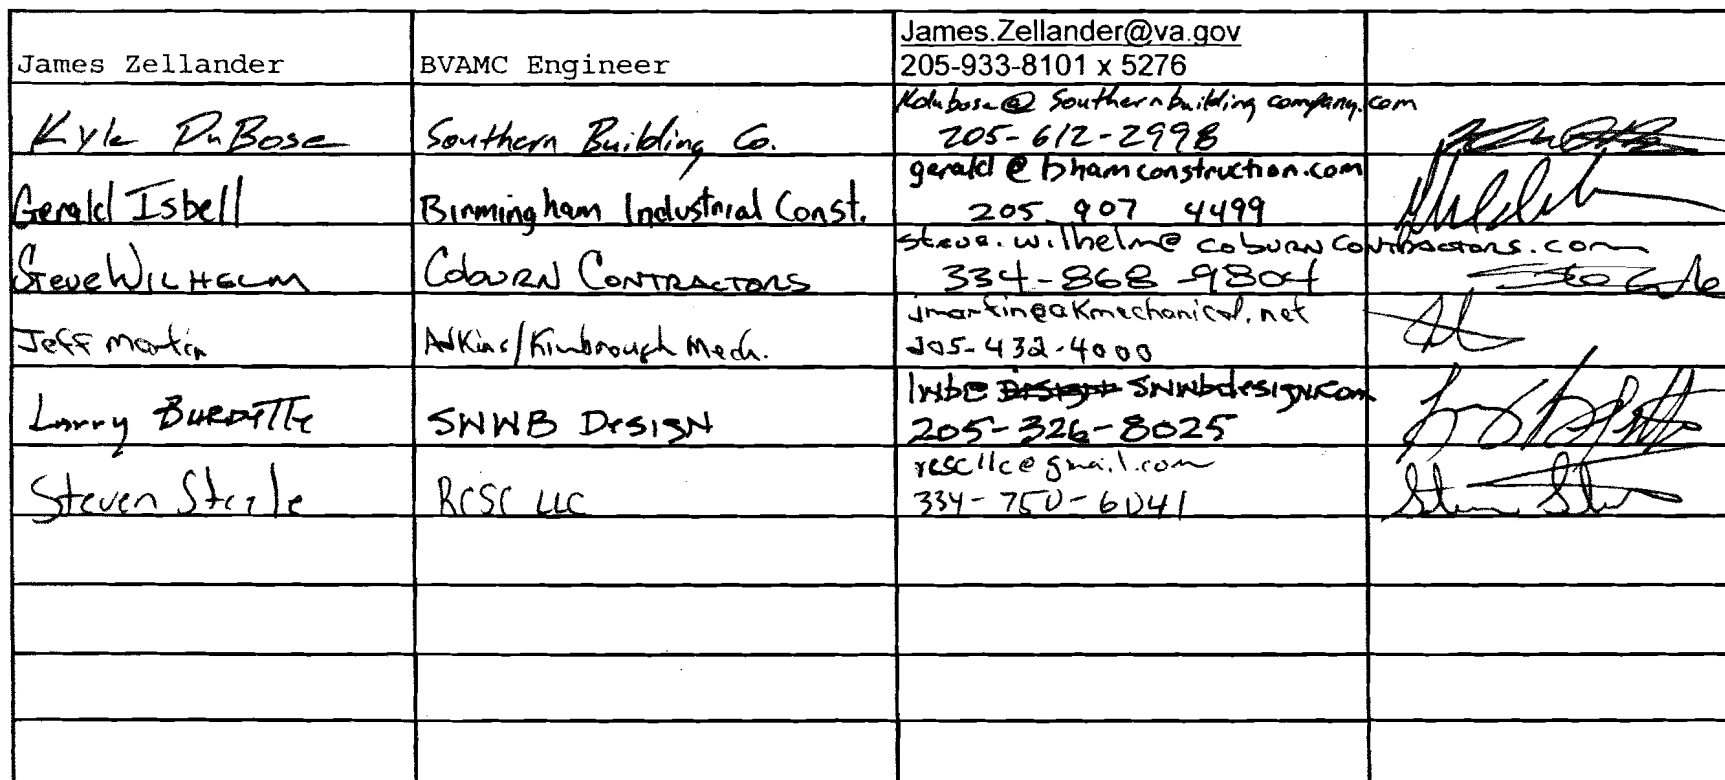 James Zellander
BVAMC Engineer
James.Zellander@va.gov
205-933-8101 x 5276
Kyle DuBose
Southern Building Co.
Kdubose@Southernbuildingcompany.com
205-612-2998
Gerald Isbell
Birmingham Industrial Const.
gerald@bhamconstruction.com
205 907 4499
Steve WILHELM
COBURN CONTRACTORS
steve.wilhelm@coburncontractors.com
334-868-9804
Jeff Martin
Adkins/Kimbrough Mech.
jmartin@akmechanical.net
205-432-4000
Larry BURDETTE
SWWB DESIGN
lwb@ swwbdesign.com
205-326-8025
Steven Steele
RCSC LLC
rcscllc@gmail.com
334-750-6041